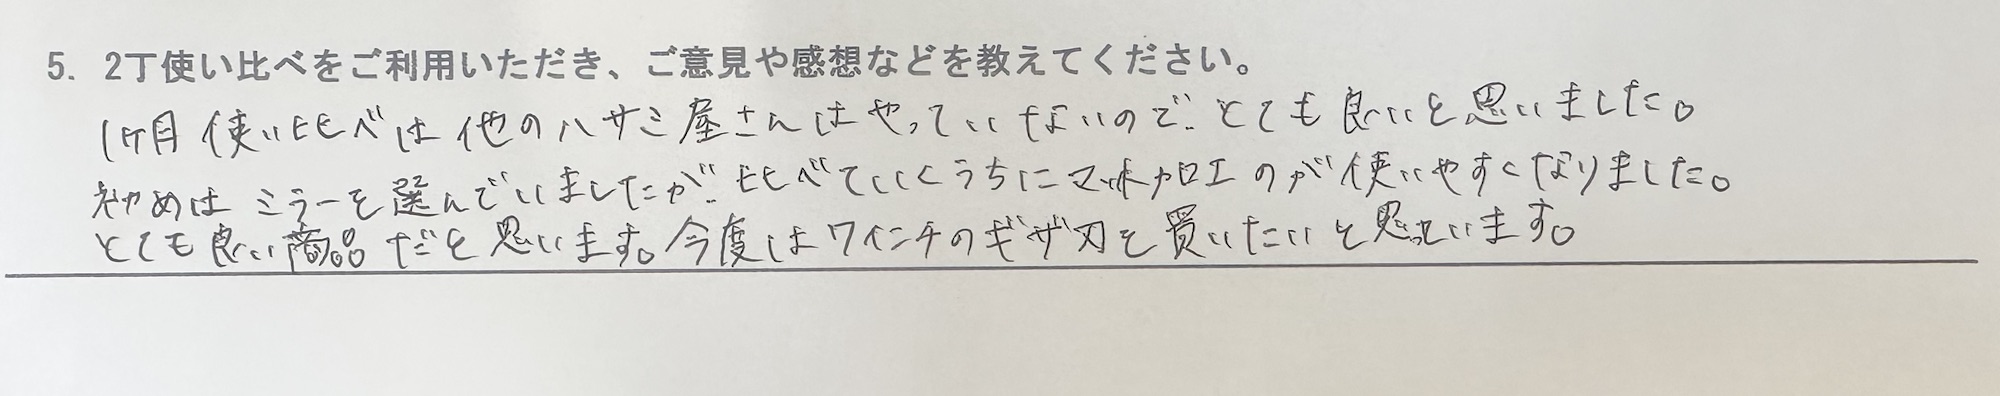 5. 2丁使い比べをご利用いただき、ご意見や感想などを教えてください。
1ケ月使い比べは他のハサミ屋さんはやっていないのでとても良いと思いました。
初めはミラーを選んでいましたが比べていくうちにマット加工のが使いやすくなりました。
とても良い商品だと思います。今度は7インチのギザ刃を買いたいと思っています。